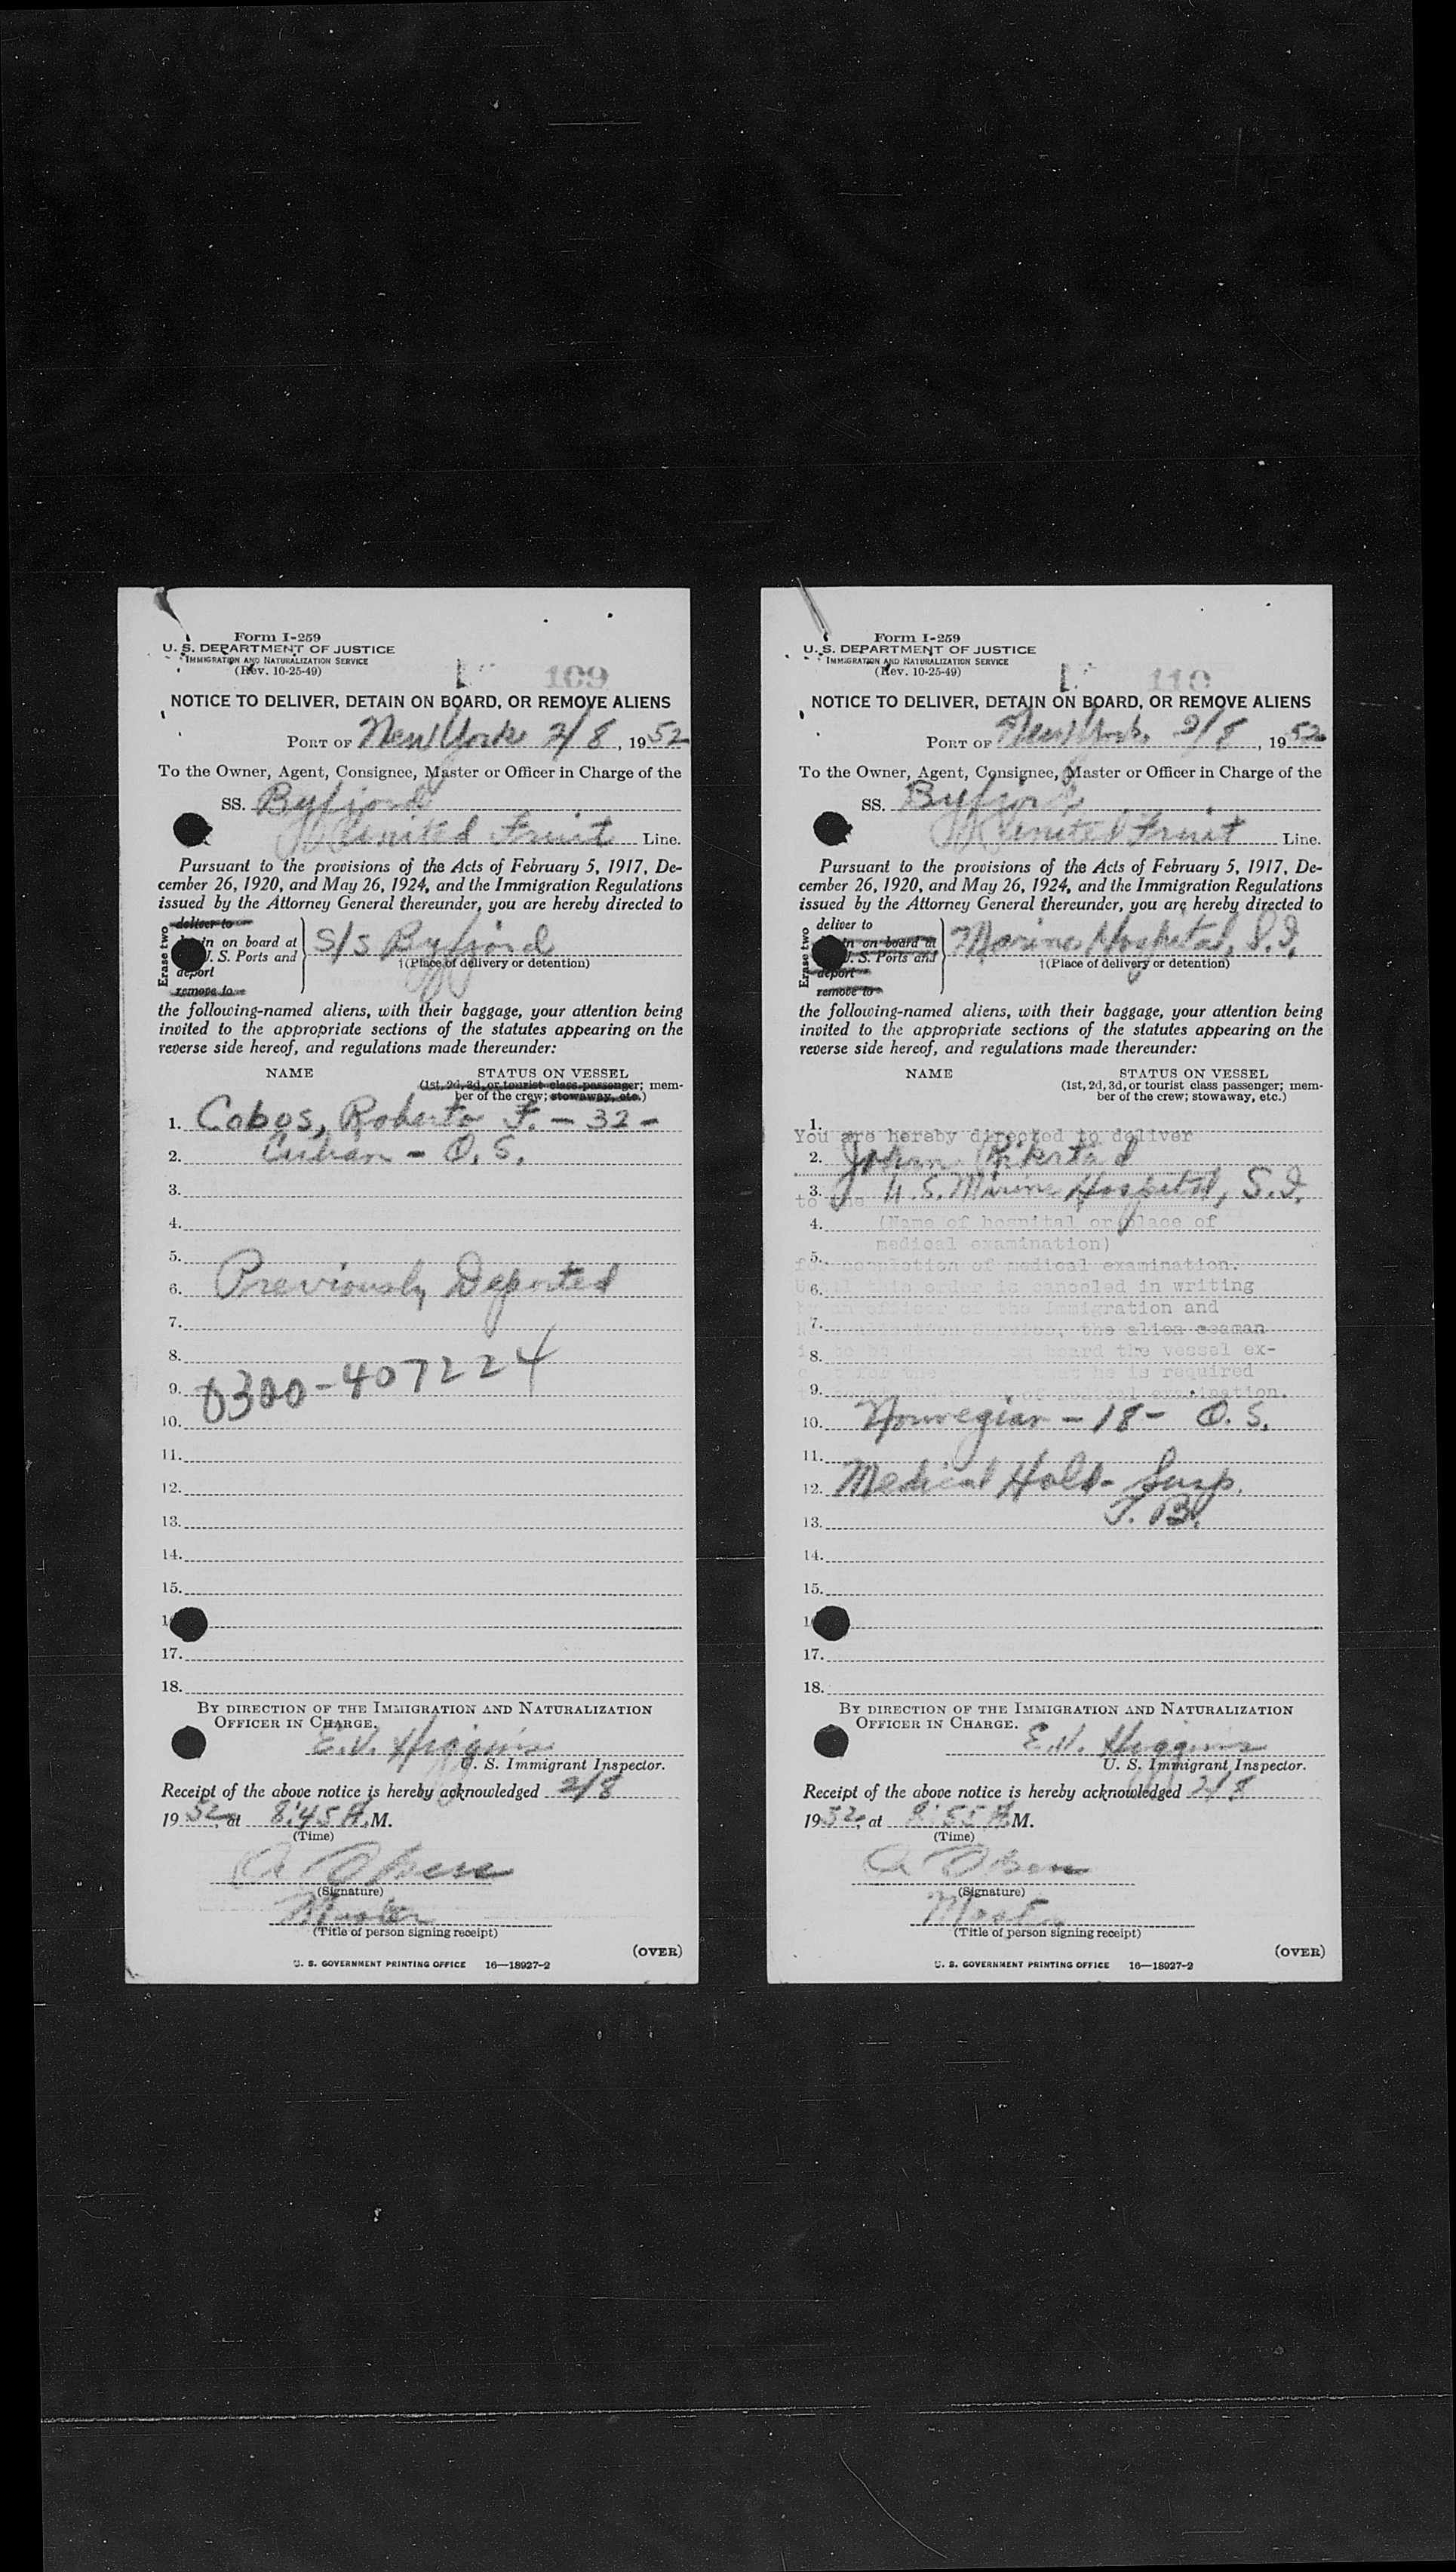 Form I-259
U. S. DEPARTMENT OF JUSTICE
IMMIGRATION AND NATURALIZATION SERVICE
(Rev. 10-25-49)
109
NOTICE TO DELIVER, DETAIN ON BOARD, OR REMOVE ALIENS
PORT OF New York 2/8, 1952
To the Owner, Agent, Consignee, Master or Officer in Charge of the
SS. Byfjord
United Fruit Line.
Pursuant to the provisions of the Acts of February 5, 1917, De-
cember 26, 1920, and May 26, 1924, and the Immigration Regulations
issued by the Attorney General thereunder, you are hereby directed to
Erase two
deliver to
in on board at
. S. Ports and
deport
remove to
S/S Byfjord
†(Place of delivery or detention)
the following-named aliens, with their baggage, your attention being
invited to the appropriate sections of the statutes appearing on the
reverse side hereof, and regulations made thereunder:
NAME STATUS ON VESSEL
(1st, 2d, 3d, or tourist class passenger; mem-
ber of the crew; stowaway, etc.)
1. Cobos, Roberto F. - 32 -
2. Cuban - O. S.
3.
4.
5.
6. Previously Deported
7.
8.
9. 0300-407224
10.
11.
12.
13.
14.
15.
17.
18.
BY DIRECTION OF THE IMMIGRATION AND NATURALIZATION
OFFICER IN CHARGE.
E. V. Higgins
U. S. Immigrant Inspector.
Receipt of the above notice is hereby acknowledged 2/8
1952, at 8:45 A.M.
(Time)
A Olsen
(Signature)
Master
(Title of person signing receipt)
(OVER)
U. S. GOVERNMENT PRINTING OFFICE 16—18927-2
Form I-259
U. S. DEPARTMENT OF JUSTICE
IMMIGRATION AND NATURALIZATION SERVICE
(Rev. 10-25-49)
110
NOTICE TO DELIVER, DETAIN ON BOARD, OR REMOVE ALIENS
PORT OF New York 2/8, 1952
To the Owner, Agent, Consignee, Master or Officer in Charge of the
SS. Byfjord
United Fruit Line.
Pursuant to the provisions of the Acts of February 5, 1917, De-
cember 26, 1920, and May 26, 1924, and the Immigration Regulations
issued by the Attorney General thereunder, you are hereby directed to
Erase two
deliver to
in on board at
. S. Ports and
deport
remove to
Marine Hospital, S.I.
†(Place of delivery or detention)
the following-named aliens, with their baggage, your attention being
invited to the appropriate sections of the statutes appearing on the
reverse side hereof, and regulations made thereunder:
NAME STATUS ON VESSEL
(1st, 2d, 3d, or tourist class passenger; mem-
ber of the crew; stowaway, etc.)
1.
You are hereby directed to deliver
2. Johan
3. to the U. S. Marine Hospital, S.I.
4. (Name of hospital or place of
medical examination)
5. completion of medical examination.
6. order is canceled in writing
officer of the Immigration and
7. the alien seaman
8. board the vessel ex-
he is required
9. of medical examination.
10. Norwegian - 18 - O. S.
11.
12. Medical Hold - Susp.
13. T. B.
14.
15.
17.
18.
BY DIRECTION OF THE IMMIGRATION AND NATURALIZATION
OFFICER IN CHARGE.
E. V. Higgins
U. S. Immigrant Inspector.
Receipt of the above notice is hereby acknowledged 2/8
1952, at 8:55 A.M.
(Time)
A Olsen
(Signature)
Master
(Title of person signing receipt)
(OVER)
U. S. GOVERNMENT PRINTING OFFICE 16—18927-2